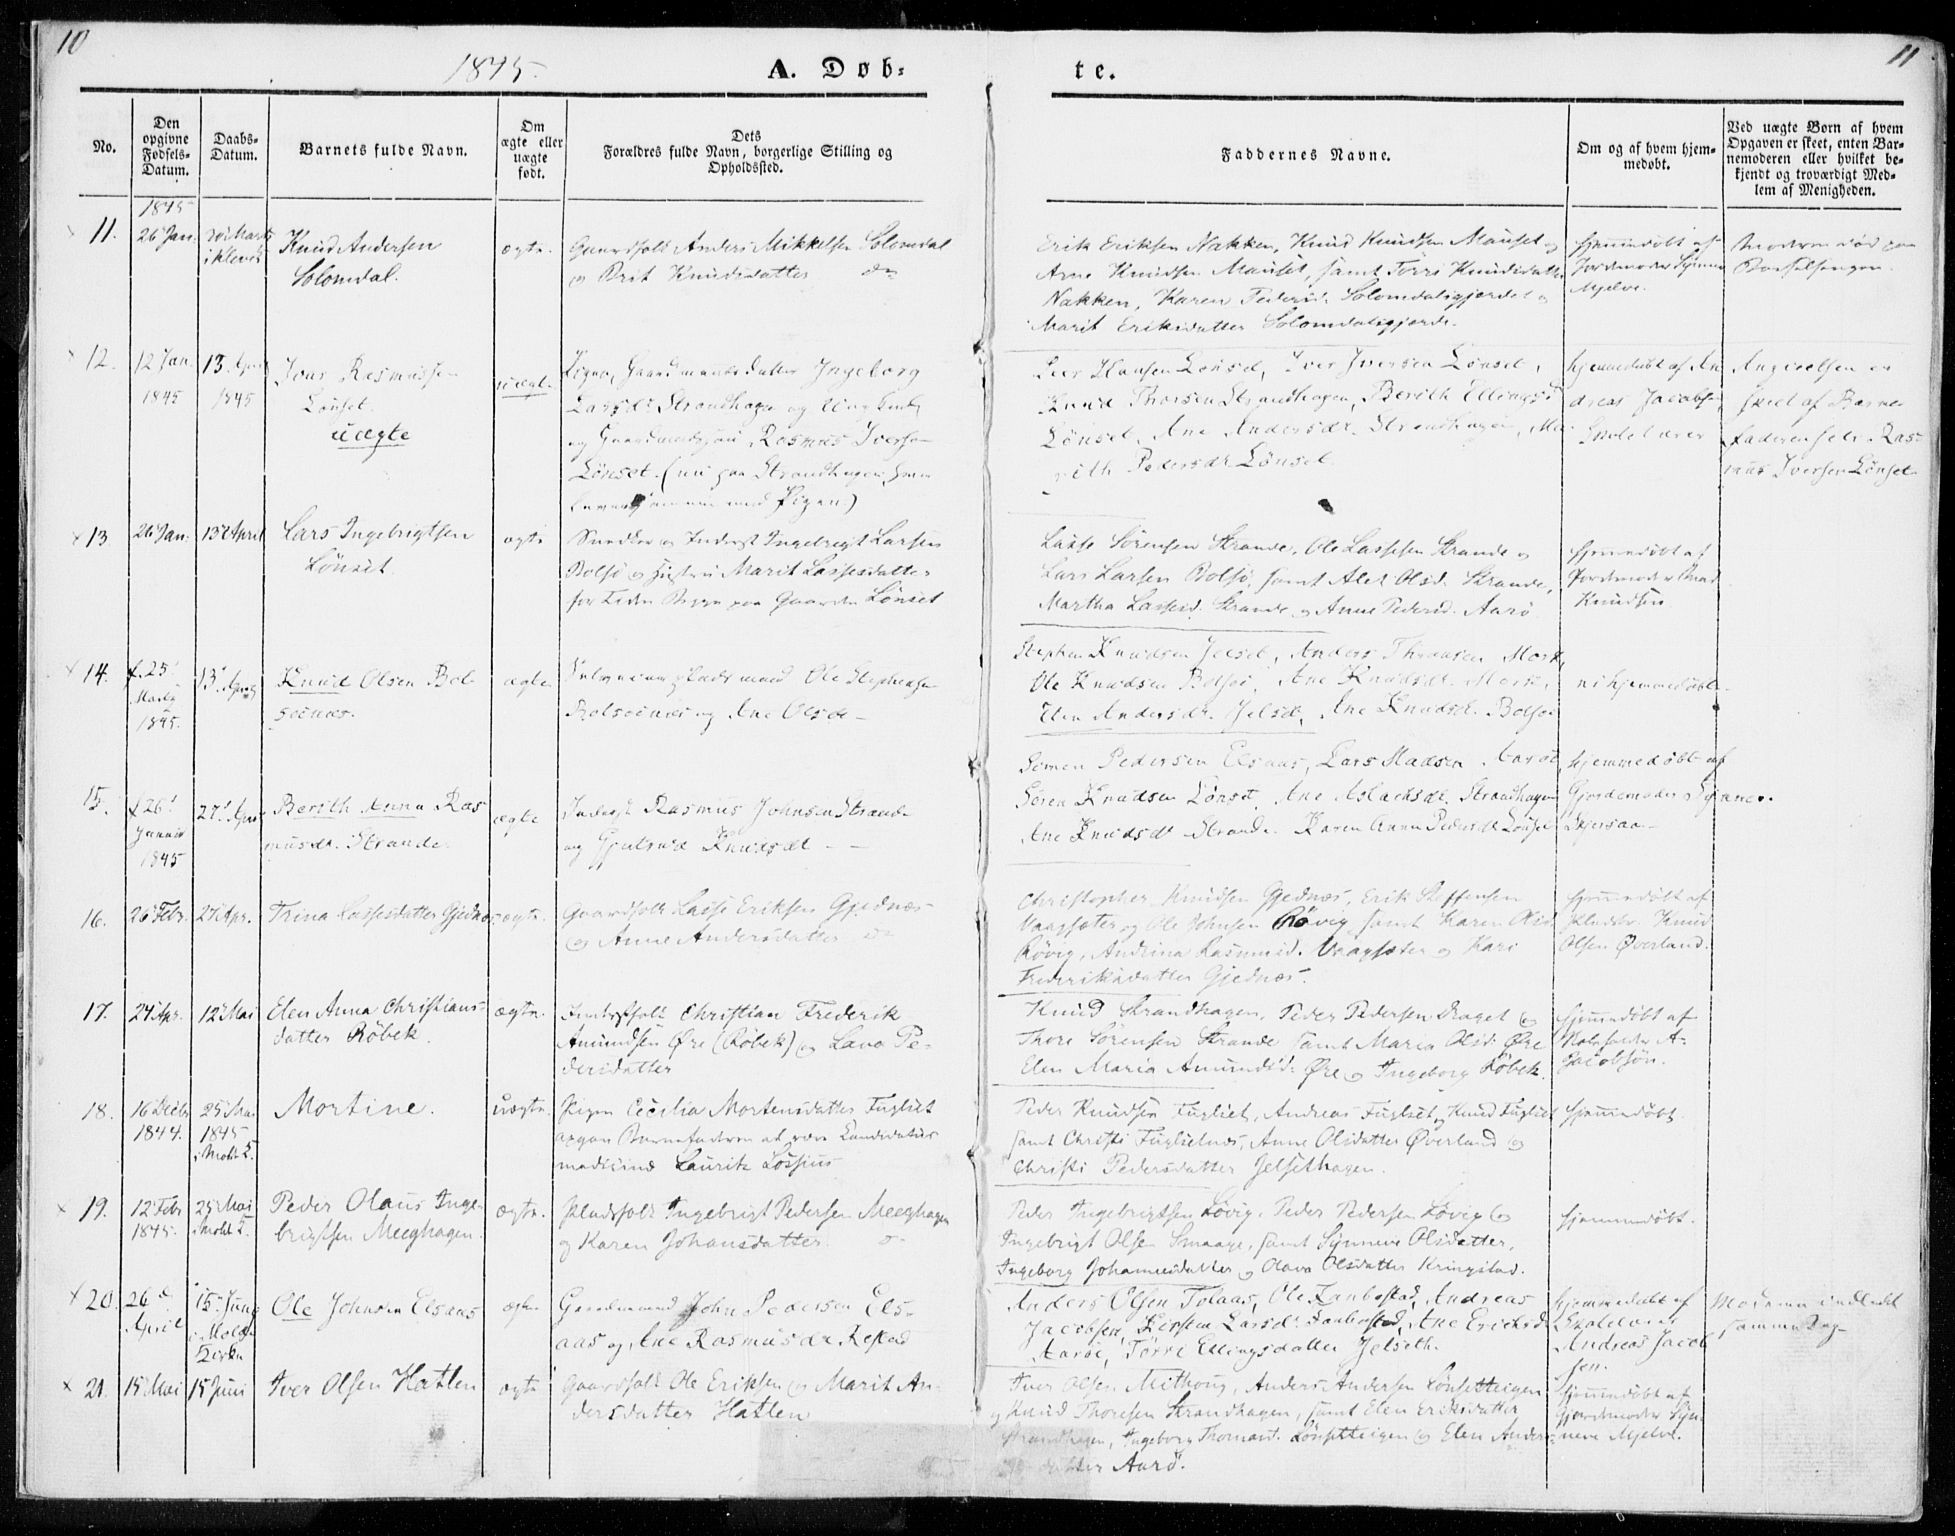 10
11
1845.
A. Døb-
te.
No.
Den opgivne Fødsels-Datum.
Daabs-Datum.
Barnets fulde Navn.
Om ægte eller uægte født.
Dets Forældres fulde Navn, borgerlige Stilling og Opholdssted.
Faddernes Navne.
Om og af hvem hjem-medøbt.
Ved uægte Børn af hvem Opgaven er skeet, enten Bar-nemoderen eller hvilket be-kjendt og troværdigt Med-lem af Menigheden.
1845
11. 26 Jan.
i Kleve
Knud Andersen
Solomdal.
ægte.
Gaardfolk Anders Mikkelsen Solomdal
og Brit Knudsdatter do
Erik Eriksen Nakken, Knud Knudsen Mauset og
Arne Knudsen Mauset, samt Torre Knudsdatter
Nakken, Karen Pedersd. Solomdalsgjerdet og
Marit Eriksdatter Solomdalsgjerde.
hjemmedøbt af
Jordemoder
Mjelve.
Moderen død paa
Barselsengen.
12. 12 Jan. 1845
13. April 1845
Ivar Rasmussen
Lønset.
uægte
uægte
Pigen, Gaardmandsdatter Ingeborg
Larsdr Strandhagen og Ungkarl
og Gaardmandssøn Rasmus Iversen
Lønset. (nu paa Strandhagen,
sammen med Pigen)
Peer Hansen Lønset, Iver Iversen Lønset,
Knud Thorsen Strandhagen, Berith Ellingsd
Lønset, Ane Andersdr. Strandhagen, Ma-
rith Pedersdr Lønset.
hjemmedøbt af An
dreas Jacobsen,
Skolelærer
Angivelsen er
skeet af Barne
faderen selv. Ras-
mus Iversen Lønset
13. 26 Jan.
13 April
Lars Ingebrigtsen
Lønset.
ægte
Snedker og Inderst Ingebrigt Larsen
Bolsø og Hustru Marit Lassesdatter
for Tiden paa Gaarden Lønset
Lasse Sørensen Strande, Ole Lassesen Strande og
Lars Larsen Bolsø, samt Alet Olsd. Strande,
Martha Lassesd. Strande og Anne Pedersd. Aarø
hjemmedøbt af
Jordemoder
Knudsen
14. f. 25 Marts 1845.
13 April
Knud Olsen Bol-
søenæs.
ægte
Ole Stephensen
Bolsøenæs og Ane Olsdr
Stephen Knudsen Jelset, Anders Mork,
Ole Knudsen Bolsøe, Ane Knudsdr. Mork,
Elen Andersdr. Jelset, Ane Knudsd. Bolsøe
ei hjemmedøbt.
15. f. 26 Januar 1845
27 April
Berith Anna Ras
musdr. Strande.
ægte
Inderst Rasmus Johnsen Strande
og Gjertrud Knudsdr
Simen Pedersen Elsaas, Lars Madsen Aarøe,
Søren Knudsen Lønset, Ane Aslachsdr. Strandhagen
Ane Knudsdr Strande. Karen Anna Pedersdr Lønset
hjemmedøbt af
Gjordemoder Synnev.
Skjersaa
16. 26 Febr.
27 Apr.
Trina Lassesdatter Gjednæs
ægte.
Gaardfolk Lasse Eriksen Gjednæs
og Anne Andersdatter do
Christopher Knudsen Gjednæs, Erik Steffensen
Vaagsæter og Ole Johnsen Røvig, samt Karen Olsd.
Røvig, Andrina Rasmusd. Vaagsæter og Kari
Frederiksdatter Gjednæs.
hjemmedøbt af
Knud
Olsen Øverland.
17. 24 Apr.
12 Mai
Elen Anna Christians-
datter Røbek.
ægte.
Inderstfolk Christian Frederik
Amundsen Øre (Røbek) og Lava Pe-
dersdatter
Knud Strandhagen, Peder Pedersen Draget og
Thore Sørensen Strande samt Maria Olsd. Øre
Elen Maria Amundsd. Øre og Ingeborg Røbek.
hjemmedøbt af
Skoleholder A.
Jacobsøn.
18. 16 Decbr 1844.
25 Mai 1845 i Molde K.
Mortine.
uægte.
Pigen Cecilia Mortensdatter Fuglset
opgav Barnefaderen at være Candidatus
medicinæ Lauritz Lossius
Peder Knudsen Fuglset, Andreas Fuglset, Knud Fuglset
samt Christi Fuglsetnæs, Anne Olsdatter Øverland og
Christi Pedersdatter Jelsethagen.
hjemmedøbt.
19. 12 Febr 1845.
25 Mai i Molde K.
Peder Olaus Inge-
brigtsen Meeghagen.
ægte.
Pladsfolk Ingebrigt Pedersen Meeghagen
og Karen Johansdatter do
Peder Ingebrigtsen Løvig, Peder Pedersen Løvig og
Ingebrigt Olsen Smaage, samt Synneve Olsdatter,
Ingeborg Johannesdatter og Olava Olsdatter Kringstad.
hjemmedøbt.
20. 26 April
15 Juni i Molde Kirke
Ole Johnsen Elsaas
ægte
Gaardmand John Pedersen Els-
aas og Ane Rasmusdr Restad
Anders Olsen Tolaas, Ole Zanbostad, Andreas
Jacobsen, Kirsten Larsdr. Zanbostad, Ane Eriksd.
Aarøe, Torre Ellingsdatter Jelseth.
hjemmedøbt af
Skolelærer
Andreas Jacob
sen.
Moderen indledet
samme Dag
21. 15 Mai
15 Juni
Iver Olsen Hatlen
ægte
Gaardfolk Ole Eriksen og Marit An-
dersdatter Hatlen
Iver Olsen Mithoug, Anders Andersen Lønsetteigen
og Knud Thoresen Strandhagen, samt Elen Eriksdatter
Strandhagen, Ingeborg Thomasd. Lønsetteigen og Elen Anders-
datter Aarø.
hjemmedøbt af
Gjordemoder Syn-
neve Mjelve.